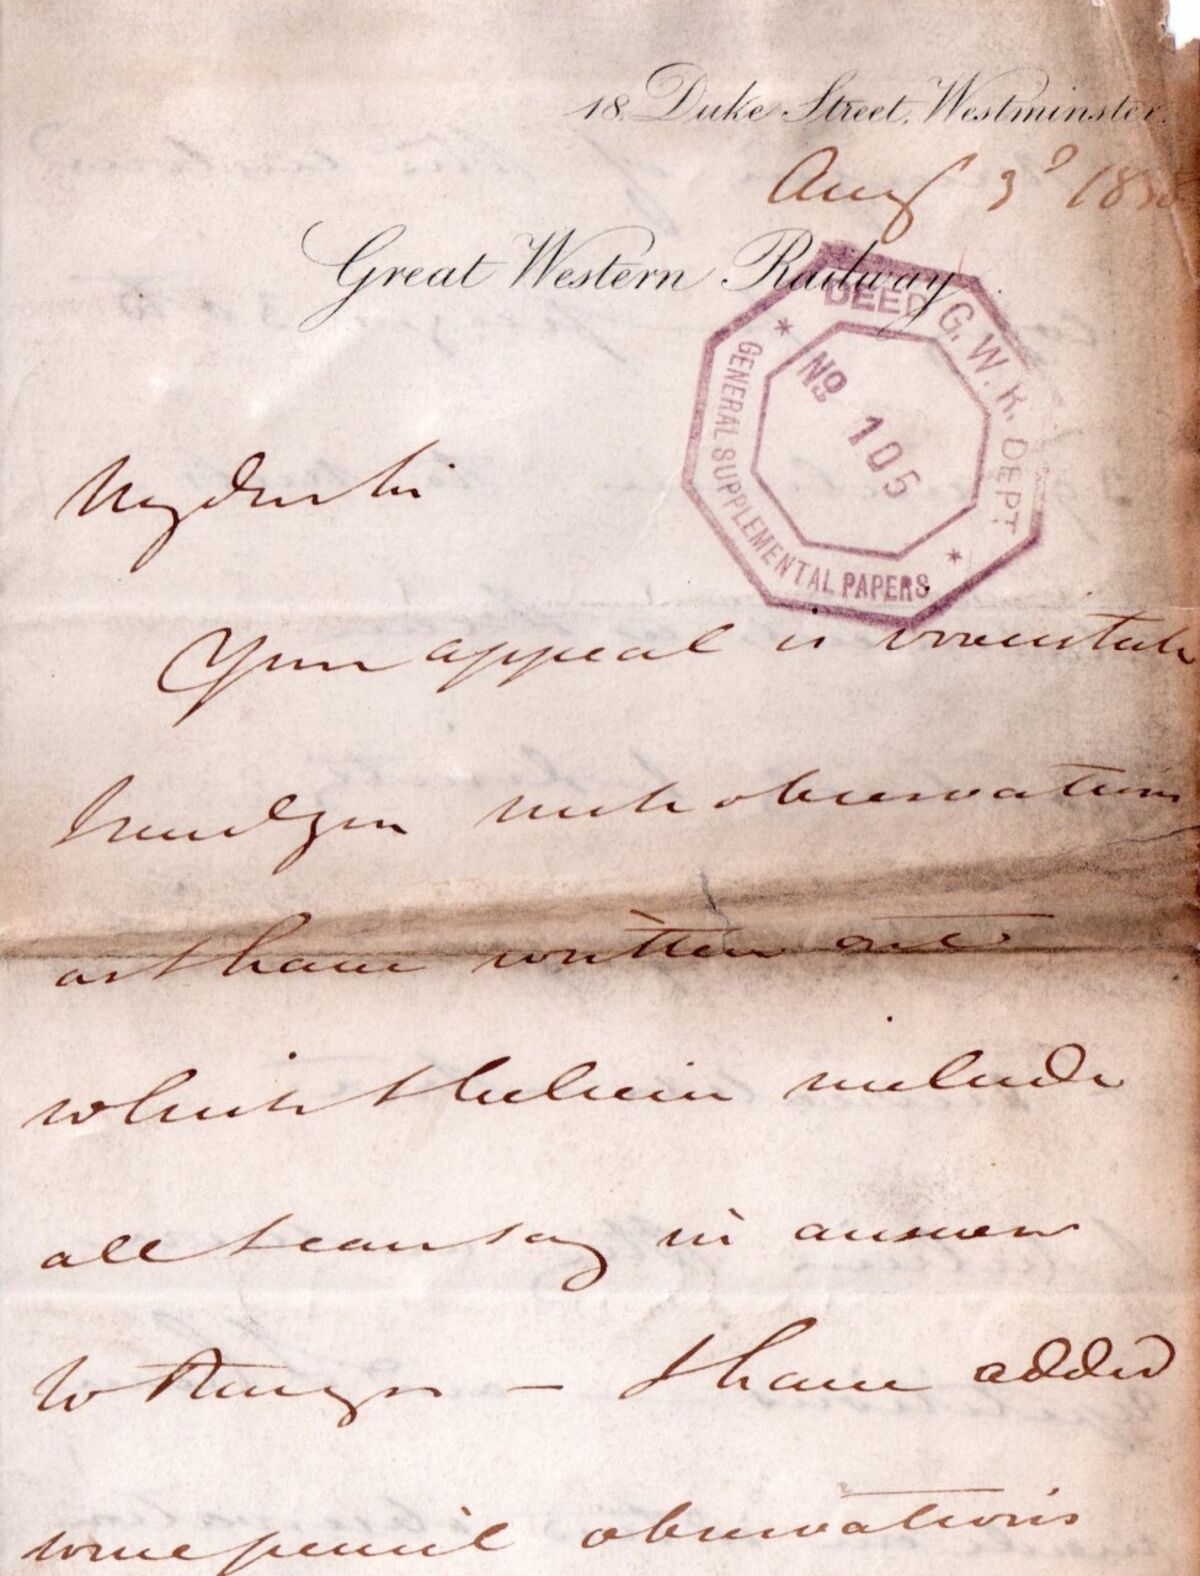 18. Duke Street, Westminster.
Aug 3d 183
Great Western Railway.
DEED G. W. R. DEPT
* GENERAL SUPPLEMENTAL PAPERS *
No 105
My dear Sir
Your appeal is irresistible
I send you such observations
as I have written out
which I believe include
all I can say in answer
to – I have added
some pencil observations